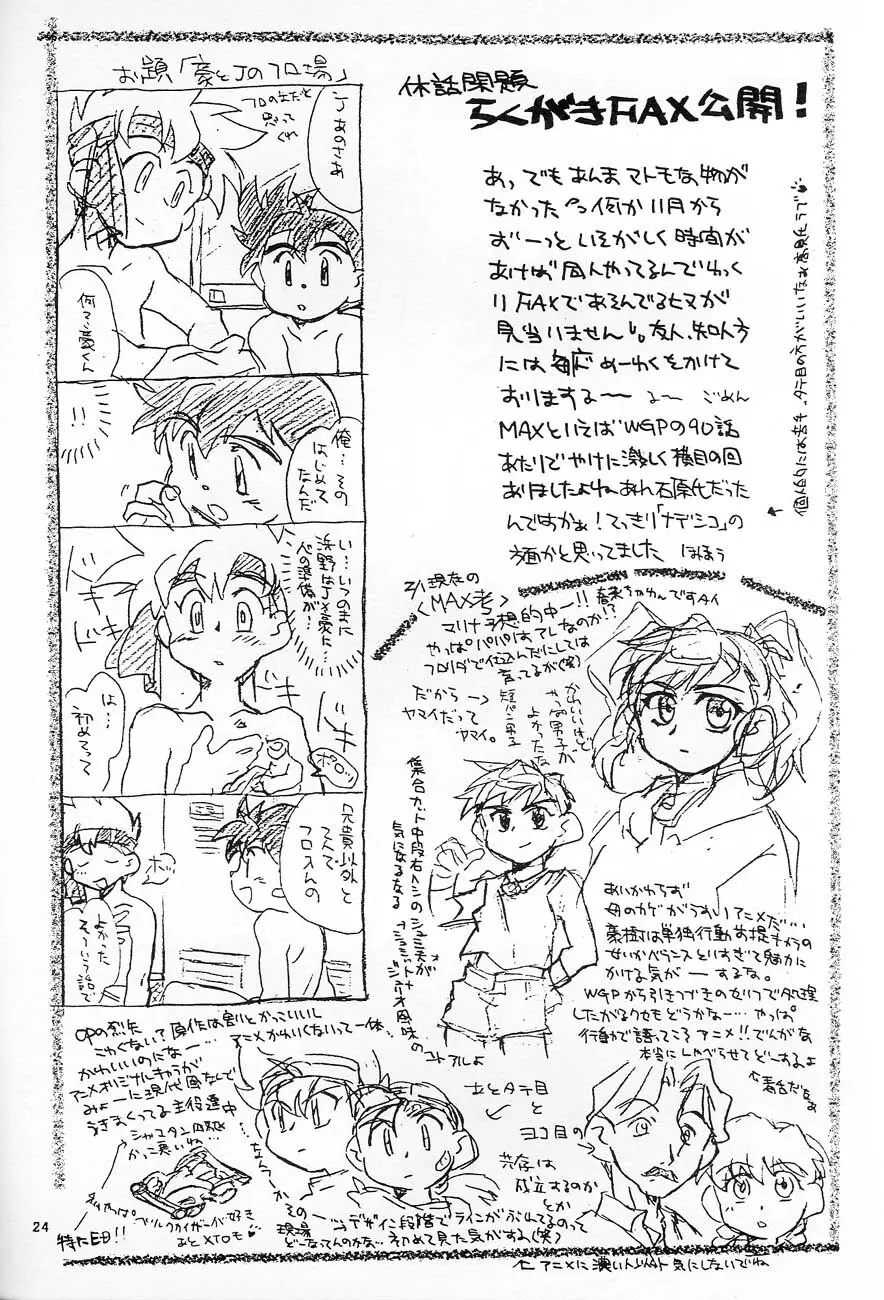 お題「豪とJのフロ場」
休話閑題
らくがきFAX公開!
J あのさあ
フロの中だと
思って
くれ
何?豪くん
俺…その
はじめて
なんだ
!!
い…いつのまに
浜野はJ×豪に…
べの準備が…
ドキ
ドキ
は…
初めてって
兄貴以外と
2人で
フロ入んの
ホッ
よかった
そういう話で
あっでもあんまマトモな物が
なかった 何か11月から
ずーっといそがしく時間が
あけば同人やってるんでゆっく
りFAXであそんでるヒマが
見当りません。友人、知人方
には毎度めーわくをかけて
おりまする〜 る〜 ごめん
MAXといえばWGPの90話
あたりでやけに激しく横目の回
ありましたよねあれ石原氏だった
んですかぁ!てっきり「ナデシコ」の
方面かと思ってました ほほう
3/1現在の
〈MAX考〉
マリナ予想的中ー!!
やっぱパパはアレなのか!?
フロリダで仕込んだにしては
育ってるが(笑)
だから→
ヤマイだって
ヤマイ。
短パン男子
かわいいけど
やっぱ男子が
よかったな
集合カット中段右ハシの
気になるなる
あいかわらず
母のカゲがうすいアニメだ…
豪樹は単独行動前提キャラの
せいかバランスといすぎて魅力に
かける気がーするな。
WGPから引きつづきのせりふで処理
したがるクセもどうかなー…やっぱ
行動で語ってころアニメ!!でんがな
本当にしゃべらせてどーするよ
OPの烈矢
こわくない?原作は割とかっこいいし
かわいいのになー…
アニメかわいくないって一体…
アニメオリジナルキャラが
みょーに現代風なんで
うきまくってる主役達中
かっこ悪いね…
特にED!!
タテ目
と
ヨコ目の
共存は
成立するのか
とか
デザイン段階でラインがぶれてるのって
初めて見た気がする(笑)
現場
どーなってんのかな…
←アニメに濃い人以外気にしないでね
24